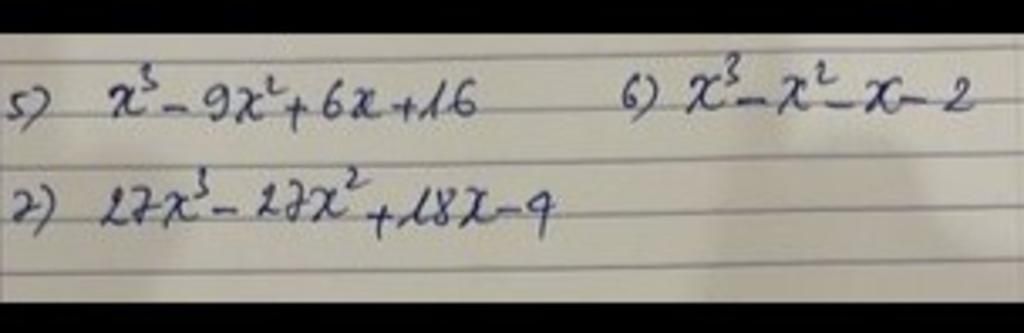 5) x³ - 9x² + 6x + 16 6) x³ - x² - x - 2
7) 27x³ - 27x² + 18x - 4